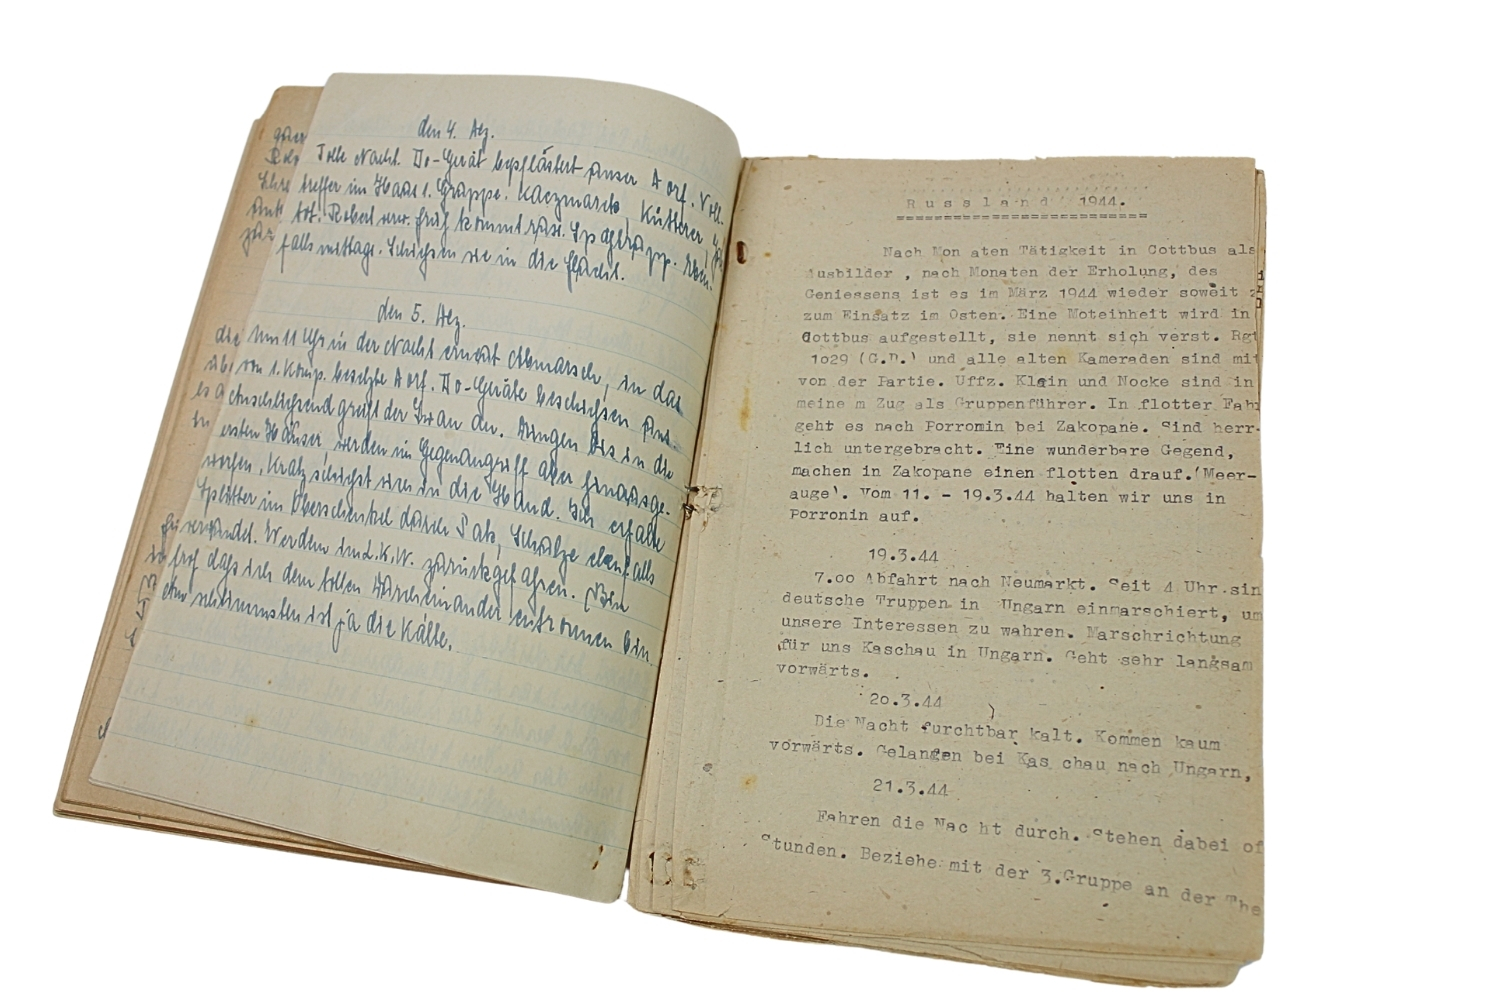 den 4. Dez.
Tolle Nacht. Do-Gerät bepflastert unser Dorf. Voll-
treffer im Haus 1. Gruppe. Kaczmarek, Kütterer,
tot. Robel verw. Früh kommt russ. Spähtrupp. Eben-
falls mittags. Schießen sie in die Flucht.
den 5. Dez.
Um 11 Uhr in der Nacht erneut Abmarsch, in das
von 1. Komp. besetzte Dorf. Do-Geräte beschießen uns.
Anschließend greift der Iwan an. Dringen bis in die
ersten Häuser, werden im Gegenangriff aber hinausge-
worfen. Kratz schießt sich in die Hand. Ich erhalte
Splitter im Oberschenkel durch Pak, Schulze ebenfalls
verwundet. Werden im L.K.W. zurückgefahren. Bin
froh daß ich dem tollen Durcheinander entronnen bin.
Am schlimmsten ist ja die Kälte.
Russland 1944.
Nach Mon aten Tätigkeit in Cottbus als
Ausbilder , nach Monaten der Erholung, des
Geniessens ist es im März 1944 wieder soweit
zum Einsatz im Osten. Eine Moteinheit wird in
Cottbus aufgestellt, sie nennt sich verst. Rgt
1029 (G.D.) und alle alten Kameraden sind mit
von der Partie. Uffz. Klein und Nocke sind in
meine m Zug als Gruppenführer. In flotter Fah
geht es nach Porromin bei Zakopane. Sind herr-
lich untergebracht. Eine wunderbare Gegend,
machen in Zakopane einen flotten drauf.(Meer-
auge). Vom 11. - 19.3.44 halten wir uns in
Porronin auf.
19.3.44
7.oo Abfahrt nach Neumarkt. Seit 4 Uhr sin
deutsche Truppen in Ungarn einmarschiert, um
unsere Interessen zu wahren. Marschrichtung
für uns Kaschau in Ungarn. Geht sehr langsam
vorwärts.
20.3.44
Die Nacht furchtbar kalt. Kommen kaum
vorwärts. Gelangen bei Kas chau nach Ungarn,
21.3.44
Fahren die Nac ht durch. Stehen dabei of
Stunden. Beziehe mit der 3.Gruppe an der The